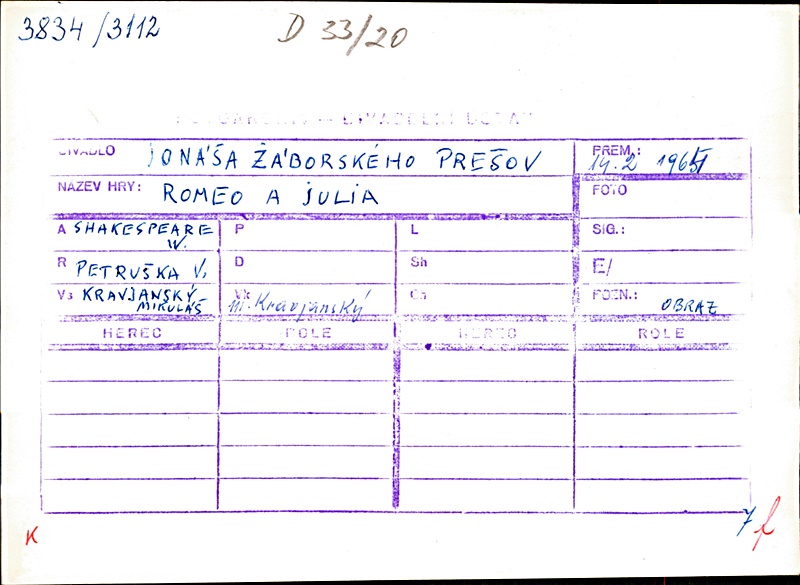 3834/3112
D 33/20
DIVADELNÍ ÚSTAV
DIVADLO JONÁŠA ZÁBORSKÉHO PREŠOV
PREM.: 14.2 1965
NÁZEV HRY: ROMEO A JULIA
FOTO
A SHAKESPEARE W.
P
L
SIG.:
R PETRUŠKA V.
D
Sh
E/
Vs KRAVJANSKÝ MIKULÁŠ
Vk M. Kravjanský
Ca
POZN.: OBRAZ
HEREC
ROLE
HEREC
ROLE
K
7 f